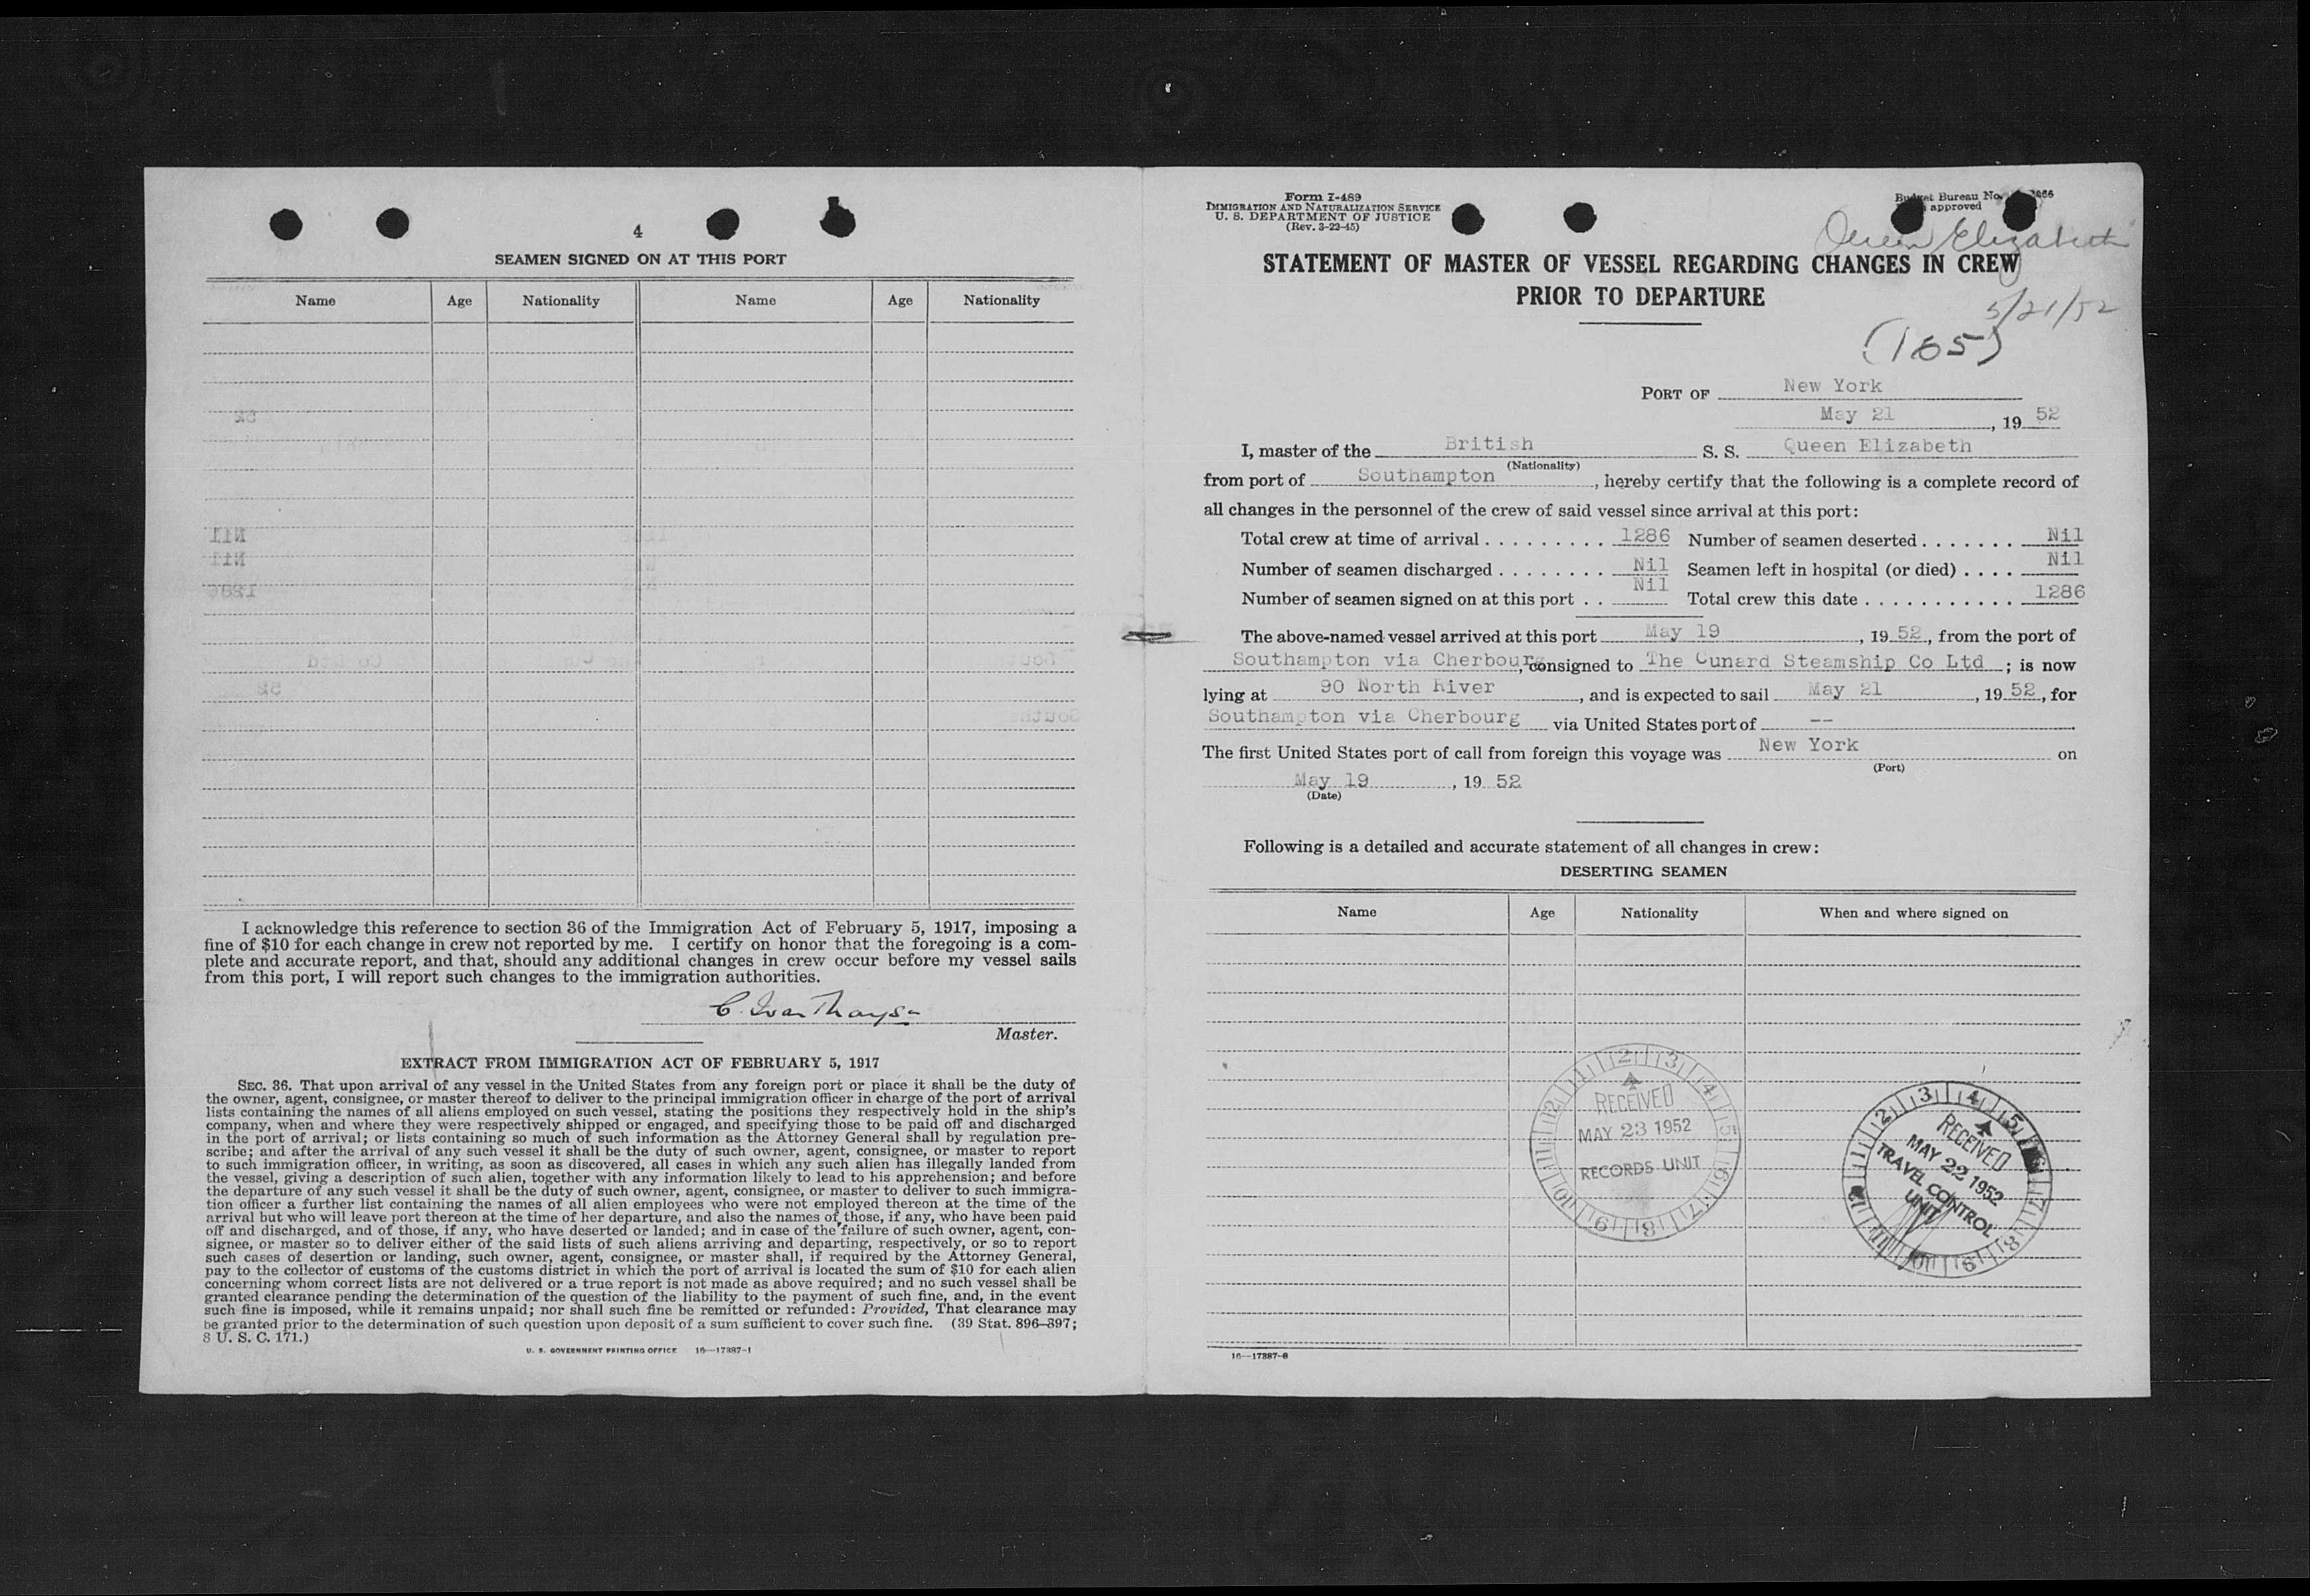 4
SEAMEN SIGNED ON AT THIS PORT
Name Age Nationality Name Age Nationality
I acknowledge this reference to section 36 of the Immigration Act of February 5, 1917, imposing a
fine of $10 for each change in crew not reported by me. I certify on honor that the foregoing is a com-
plete and accurate report, and that, should any additional changes in crew occur before my vessel sails
from this port, I will report such changes to the immigration authorities.
C. Ivan Thompson
Master.
EXTRACT FROM IMMIGRATION ACT OF FEBRUARY 5, 1917
SEC. 36. That upon arrival of any vessel in the United States from any foreign port or place it shall be the duty of
the owner, agent, consignee, or master thereof to deliver to the principal immigration officer in charge of the port of arrival
lists containing the names of all aliens employed on such vessel, stating the positions they respectively hold in the ship's
company, when and where they were respectively shipped or engaged, and specifying those to be paid off and discharged
in the port of arrival; or lists containing so much of such information as the Attorney General shall by regulation pre-
scribe; and after the arrival of any such vessel it shall be the duty of such owner, agent, consignee, or master to report
to such immigration officer, in writing, as soon as discovered, all cases in which any such alien has illegally landed from
the vessel, giving a description of such alien, together with any information likely to lead to his apprehension; and before
the departure of any such vessel it shall be the duty of such owner, agent, consignee, or master to deliver to such immigra-
tion officer a further list containing the names of all alien employees who were not employed thereon at the time of the
arrival but who will leave port thereon at the time of her departure, and also the names of those, if any, who have been paid
off and discharged, and of those, if any, who have deserted or landed; and in case of the failure of such owner, agent, con-
signee, or master so to deliver either of the said lists of such aliens arriving and departing, respectively, or so to report
such cases of desertion or landing, such owner, agent, consignee, or master shall, if required by the Attorney General,
pay to the collector of customs of the customs district in which the port of arrival is located the sum of $10 for each alien
concerning whom correct lists are not delivered or a true report is not made as above required; and no such vessel shall be
granted clearance pending the determination of the question of the liability to the payment of such fine, and, in the event
such fine is imposed, while it remains unpaid; nor shall such fine be remitted or refunded: Provided, That clearance may
be granted prior to the determination of such question upon deposit of a sum sufficient to cover such fine. (39 Stat. 896–897;
8 U. S. C. 171.)
U. S. GOVERNMENT PRINTING OFFICE 16—17387-1
Form I-489
IMMIGRATION AND NATURALIZATION SERVICE
U. S. DEPARTMENT OF JUSTICE
(Rev. 3-22-45)
Budget Bureau No.
approved
Queen Elizabeth
STATEMENT OF MASTER OF VESSEL REGARDING CHANGES IN CREW
PRIOR TO DEPARTURE
5/21/52
(165)
PORT OF New York
May 21, 19 52
I, master of the British S. S. Queen Elizabeth
(Nationality)
from port of Southampton, hereby certify that the following is a complete record of
all changes in the personnel of the crew of said vessel since arrival at this port:
Total crew at time of arrival . . . . . . . . . . 1286 Number of seamen deserted . . . . . . . Nil
Number of seamen discharged . . . . . . . . Nil Seamen left in hospital (or died) . . . . Nil
Number of seamen signed on at this port . . Nil Total crew this date . . . . . . . . . . . . 1286
The above-named vessel arrived at this port May 19, 19 52, from the port of
Southampton via Cherbourg, consigned to The Cunard Steamship Co Ltd; is now
lying at 90 North River, and is expected to sail May 21, 19 52, for
Southampton via Cherbourg via United States port of --
The first United States port of call from foreign this voyage was New York on
(Port)
May 19, 19 52
(Date)
Following is a detailed and accurate statement of all changes in crew:
DESERTING SEAMEN
Name Age Nationality When and where signed on
RECEIVED
MAY 23 1952
RECORDS UNIT
1 2 3 4 5 6 7 8 9 10 11 12
RECEIVED
MAY 22 1952
TRAVEL CONTROL
UNIT
1 2 3 4 5 6 7 8 9 10 11 12
16—17387-8